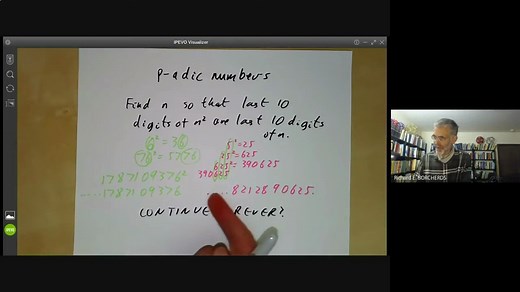 IPEVO Visualizer
p-adic numbers
Find n so that last 10
digits of n² are last 10 digits
of n.
6² = 36 5² = 25
76² = 5776 25² = 625
625² = 390625
1787109376² 390625
.....1787109376 .....8212890625.
CONTINUE FOREVER?
Richard E. BORCHERDS